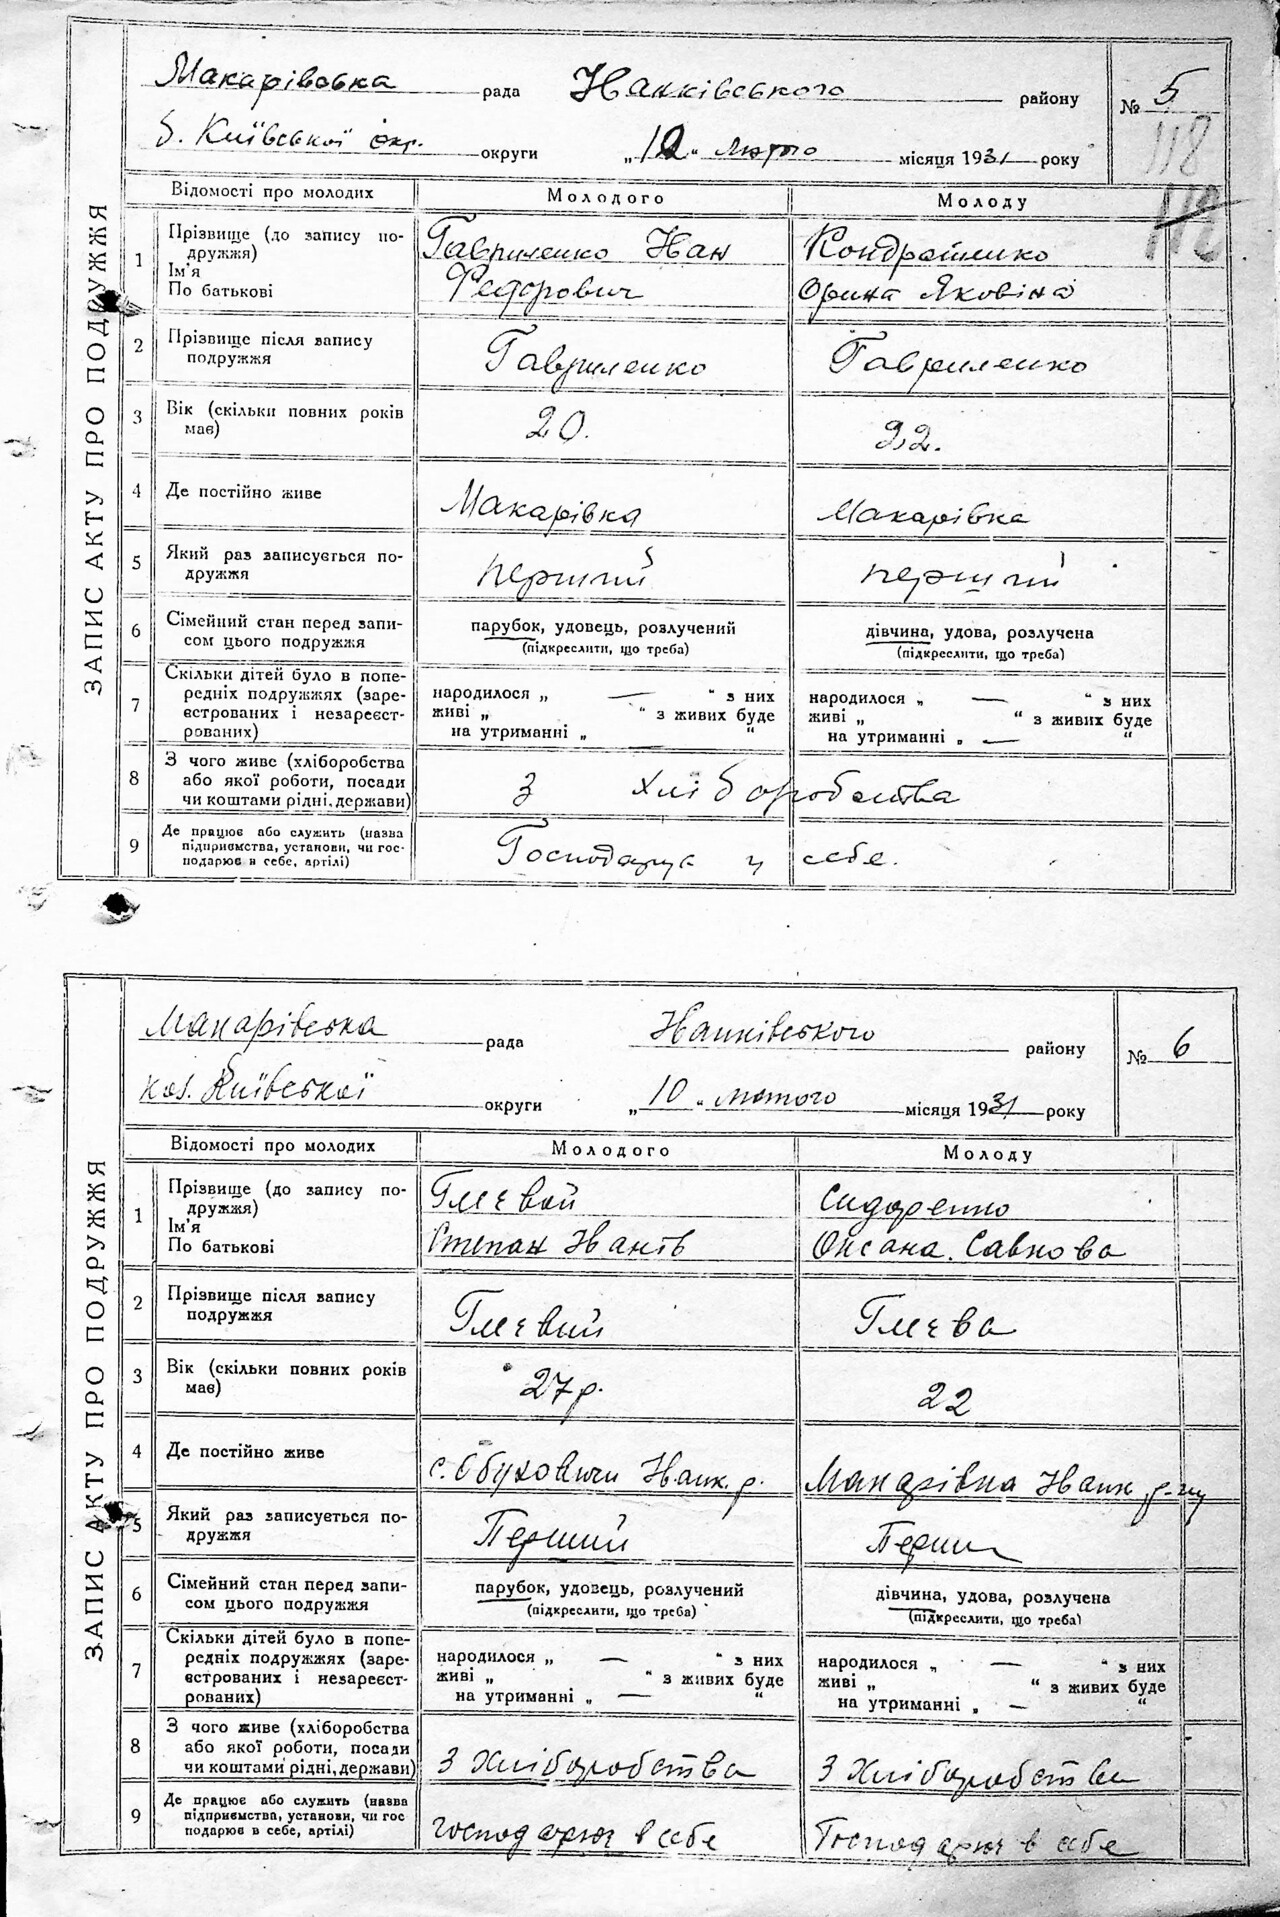 Макарівська рада Іванківського району № 5
б. Київської окр. округи „10“ лютого місяця 1931 року
118
ЗАПИС АКТУ ПРО ПОДРУЖЖЯ
Відомості про молодих Молодого Молоду
1 Прізвище (до запису по-
дружжя)
Ім'я
По батькові
Гавриленко Іван
Федорович
Кондратенко
Орина Яковівна
2 Прізвище після запису
подружжя
Гавриленко Гавриленко
3 Вік (скільки повних років
має)
20. 22.
4 Де постійно живе Макарівка Макарівка
5 Який раз записується по-
дружжя
перший перший
6 Сімейний стан перед запи-
сом цього подружжя
парубок, удовець, розлучений
(підкреслити, що треба)
дівчина, удова, розлучена
(підкреслити, що треба)
7 Скільки дітей було в попе-
редніх подружжях (заре-
єстрованих і незареєст-
рованих)
народилося „ — “ з них
живі „ “ з живих буде
на утриманні „ — “
народилося „ — “ з них
живі „ “ з живих буде
на утриманні „ — “
8 З чого живе (хліборобства
або якої роботи, посади
чи коштами рідні, держави)
З хліборобства
9 Де працює або служить (назва
підприємства, установи, чи гос-
подарює в себе, артілі)
Господарує у себе.
Макарівська рада Іванківського району № 6
Київської округи „10“ лютого місяця 1931 року
ЗАПИС АКТУ ПРО ПОДРУЖЖЯ
Відомості про молодих Молодого Молоду
1 Прізвище (до запису по-
дружжя)
Ім'я
По батькові
Степан Іванів
Сидоренко
Оксана Савкова
2 Прізвище після запису
подружжя
3 Вік (скільки повних років
має)
27 р. 22
4 Де постійно живе с. Обуховичи Іванк. р. Макарівка Іванк р-ну
5 Який раз записується по-
дружжя
Перший Перши
6 Сімейний стан перед запи-
сом цього подружжя
парубок, удовець, розлучений
(підкреслити, що треба)
дівчина, удова, розлучена
(підкреслити, що треба)
7 Скільки дітей було в попе-
редніх подружжях (заре-
єстрованих і незареєст-
рованих)
народилося „ — “ з них
живі „ “ з живих буде
на утриманні „ — “
народилося „ — “ з них
живі „ “ з живих буде
на утриманні „ — “
8 З чого живе (хліборобства
або якої роботи, посади
чи коштами рідні, держави)
З Хліборобства З Хліборобства
9 Де працює або служить (назва
підприємства, установи, чи гос
подарює в себе, артілі)
господарює в себе Господарює в себе